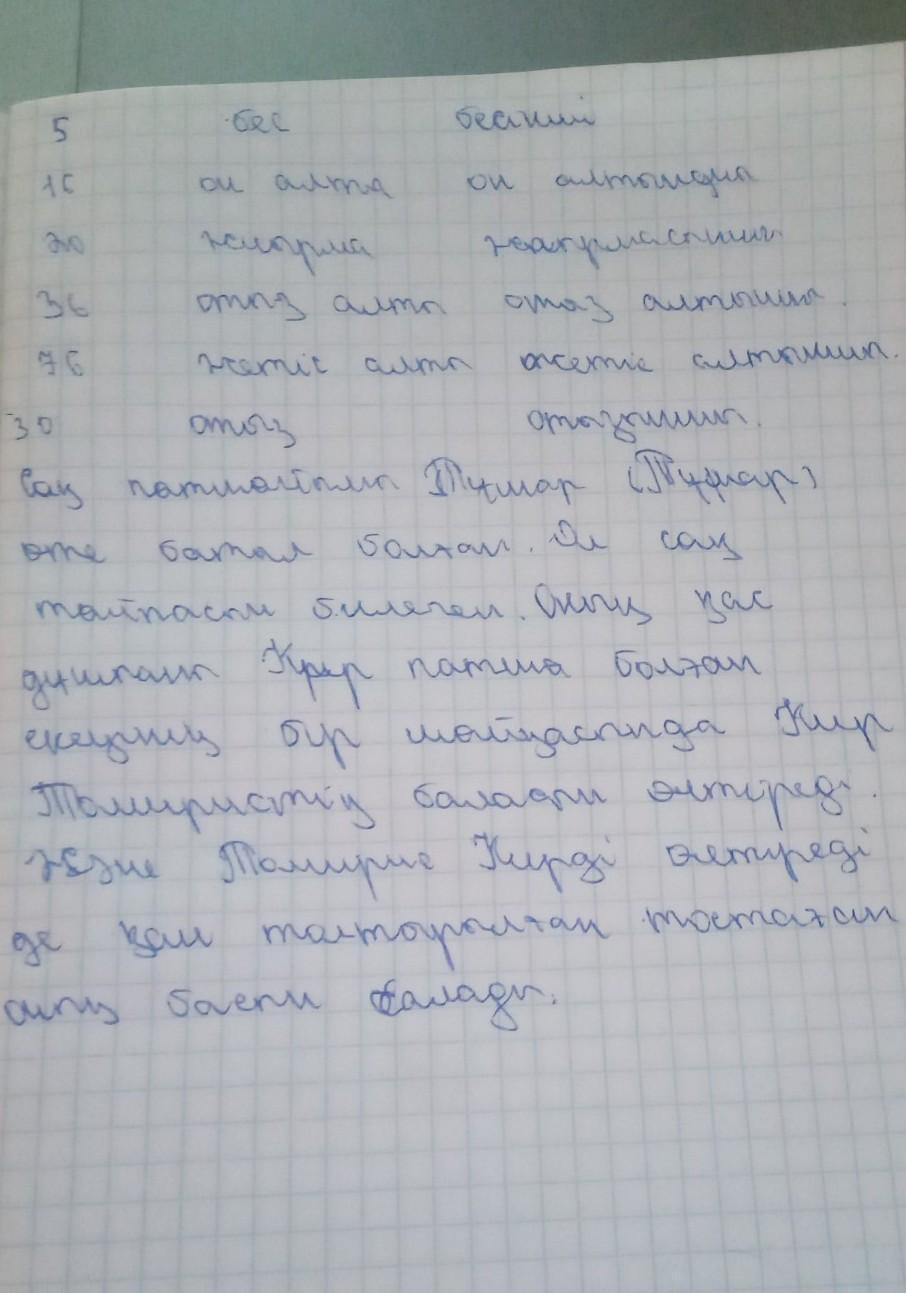 5 бес бесінші
16 он алты он алтыншы
20 жиырма жиырмасыншы
36 отыз алты отыз алтыншы.
76 жетпіс алты жетпіс алтыншы.
30 отыз отызыншы.
Сақ патшайымы Тұмар (Тұмар)
өте батыл болған. Ол сақ
тайпасын билеген. Оның қас
дұшпаны Кир патша болған
екеуінің бір шайқасында Кир
Томиристің баласын өлтіреді.
Және Томирис Кирді өлтіреді
де қан толтырылған тостаған
басын салады.